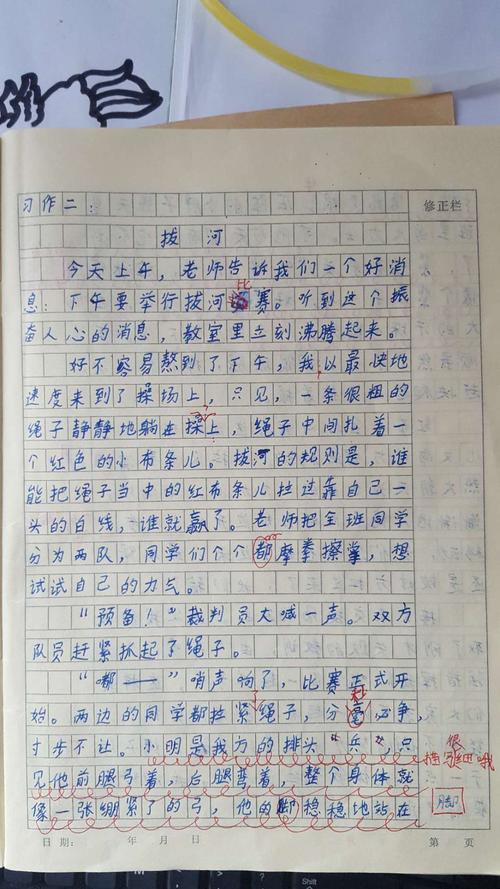 习作二：
修正栏
拔河
今天上午，老师告诉我们一个好消
比
息：下午要举行拔河赛。听到这个振
奋人心的消息，教室里立刻沸腾起来。
好不容易熬到了下午，我以最快地
速度来到了操场上，只见，一条很粗的
绳子静静地躺在操上，绳子中间扎着一
个红色的小布条儿。拔河的规则是，谁
能把绳子当中的红布条儿拉过靠自己一
头的白线，谁就赢了。老师把全班同学
分为两队，同学们个个都摩拳擦掌，想
试试自己的力气。
“预备！”裁判员大喊一声。双方
队员赶紧抓起了绳子。
“嘟——”哨声响了，比赛正式开
秒
始。两边的同学都拉紧绳子，分毫必争，
寸步不让。小明是我方的排头“兵”，只
很
描写细哦
见他前腿弓着，后腿弯着，整个身体就
像一张绷紧了的弓，他的脚稳稳地站在
脚
日期： 年 月 日 第 页
Shift